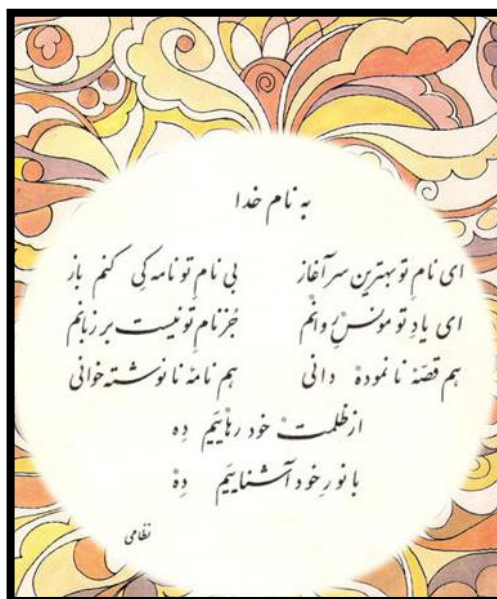 به نام خدا
ای نامِ تو بهترین سرآغاز بی نامِ تو نامه کِی کنم باز
ای یادِ تو مونسِ رُوانَم جُز نامِ تو نیست بر زبانم
هم قصّهٔ نانموده دانی هم نامهٔ نانوشته خوانی
از ظلمتِ خود رهاییَم ده
با نورِ خود آشناییَم دِه
نظامی